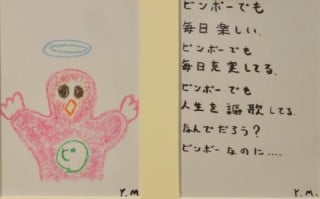 ビンボーでも
毎日楽しい.
ビンボーでも
毎日充実してる.
ビンボーでも
人生を謳歌してる.
なんでだろう?
ビンボーなのに....
Y.M
Y.M.